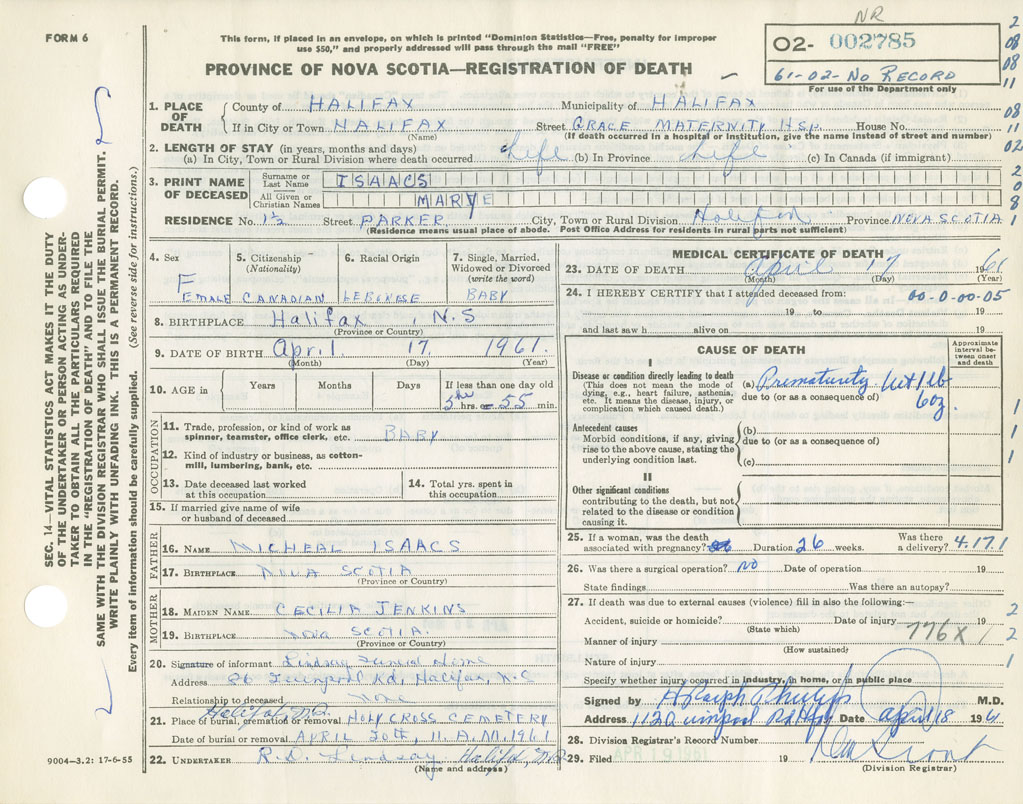 NR
FORM 6
This form, if placed in an envelope, on which is printed "Dominion Statistics—Free, penalty for improper
use $50," and properly addressed will pass through the mail "FREE"
PROVINCE OF NOVA SCOTIA—REGISTRATION OF DEATH
02- 002785
61-02-No RECORD
For use of the Department only
2
08
08
11
08
11
02
2
0
8
1
1. PLACE OF DEATH
County of HALIFAX Municipality of HALIFAX
If in City or Town HALIFAX Street GRACE MATERNITY HSP. House No.
(Name) (If death occurred in a hospital or institution, give the name instead of street and number)
2. LENGTH OF STAY (in years, months and days)
(a) In City, Town or Rural Division where death occurred Life (b) In Province Life (c) In Canada (if immigrant)
3. PRINT NAME OF DECEASED
Surname or Last Name ISAACS
All Given or Christian Names MARYE
RESIDENCE No. 1½ Street PARKER City, Town or Rural Division Halifax Province NOVA SCOTIA
(Residence means usual place of abode. Post Office Address for residents in rural parts not sufficient)
4. Sex
FEMALE
5. Citizenship (Nationality)
CANADIAN
6. Racial Origin
LEBENESE
7. Single, Married, Widowed or Divorced (write the word)
BABY
8. BIRTHPLACE Halifax, N.S
(Province or Country)
9. DATE OF BIRTH April 17, 1961.
(Month) (Day) (Year)
10. AGE in Years Months Days If less than one day old
5 hrs. 55 min.
OCCUPATION
11. Trade, profession, or kind of work as spinner, teamster, office clerk, etc. BABY
12. Kind of industry or business, as cotton-mill, lumbering, bank, etc.
13. Date deceased last worked at this occupation
14. Total yrs. spent in this occupation
15. If married give name of wife or husband of deceased
FATHER
16. NAME MICHEAL ISAACS
17. BIRTHPLACE NOVA SCOTIA
(Province or Country)
MOTHER
18. MAIDEN NAME CECILIA JENKINS
19. BIRTHPLACE NOVA SCOTIA.
(Province or Country)
20. Signature of informant Lindsay Funeral Home
Address Rd, Halifax, N.S
Relationship to deceased None
Halifax
21. Place of burial, cremation or removal HOLY CROSS CEMETERY
Date of burial or removal APRIL 20TH, 11. A.M. 1961
22. UNDERTAKER R.D. Lindsay Halifax
(Name and address)
MEDICAL CERTIFICATE OF DEATH
23. DATE OF DEATH April 17 1961
(Month) (Day) (Year)
24. I HEREBY CERTIFY that I attended deceased from: 00-0-00-05
19 to 19
and last saw h alive on 19
CAUSE OF DEATH
Approximate interval between onset and death
I
Disease or condition directly leading to death
(This does not mean the mode of dying, e.g., heart failure, asthenia, etc. It means the disease, injury, or complication which caused death.)
(a) Prematurity. Wt 1 lb 6oz.
due to (or as a consequence of)
Antecedent causes
Morbid conditions, if any, giving rise to the above cause, stating the underlying condition last.
(b)
due to (or as a consequence of)
(c)
1
1
1
II
Other significant conditions
contributing to the death, but not related to the disease or condition causing it.
25. If a woman, was the death associated with pregnancy? Duration 26 weeks. Was there a delivery? 4.17.1
26. Was there a surgical operation? No Date of operation 19
State findings Was there an autopsy?
27. If death was due to external causes (violence) fill in also the following:—
Accident, suicide or homicide? Date of injury 19
(State which)
Manner of injury 776X
(How sustained)
Nature of injury
2
1
2
1
Specify whether injury occurred in industry, in home, or in public place
Signed by Ralph Philips M.D.
Address 112 Quinpool Rd Hfx Date April 18 1961
28. Division Registrar's Record Number
29. Filed APR 19 1961 19
(Division Registrar)
SEC. 14—VITAL STATISTICS ACT MAKES IT THE DUTY
OF THE UNDERTAKER OR PERSON ACTING AS UNDER-
TAKER TO OBTAIN ALL THE PARTICULARS REQUIRED
IN THE "REGISTRATION OF DEATH" AND TO FILE THE
SAME WITH THE DIVISION REGISTRAR WHO SHALL ISSUE THE BURIAL PERMIT.
WRITE PLAINLY WITH UNFADING INK. THIS IS A PERMANENT RECORD.
Every item of information should be carefully supplied. (See reverse side for instructions.)
9004—3.2: 17-6-55